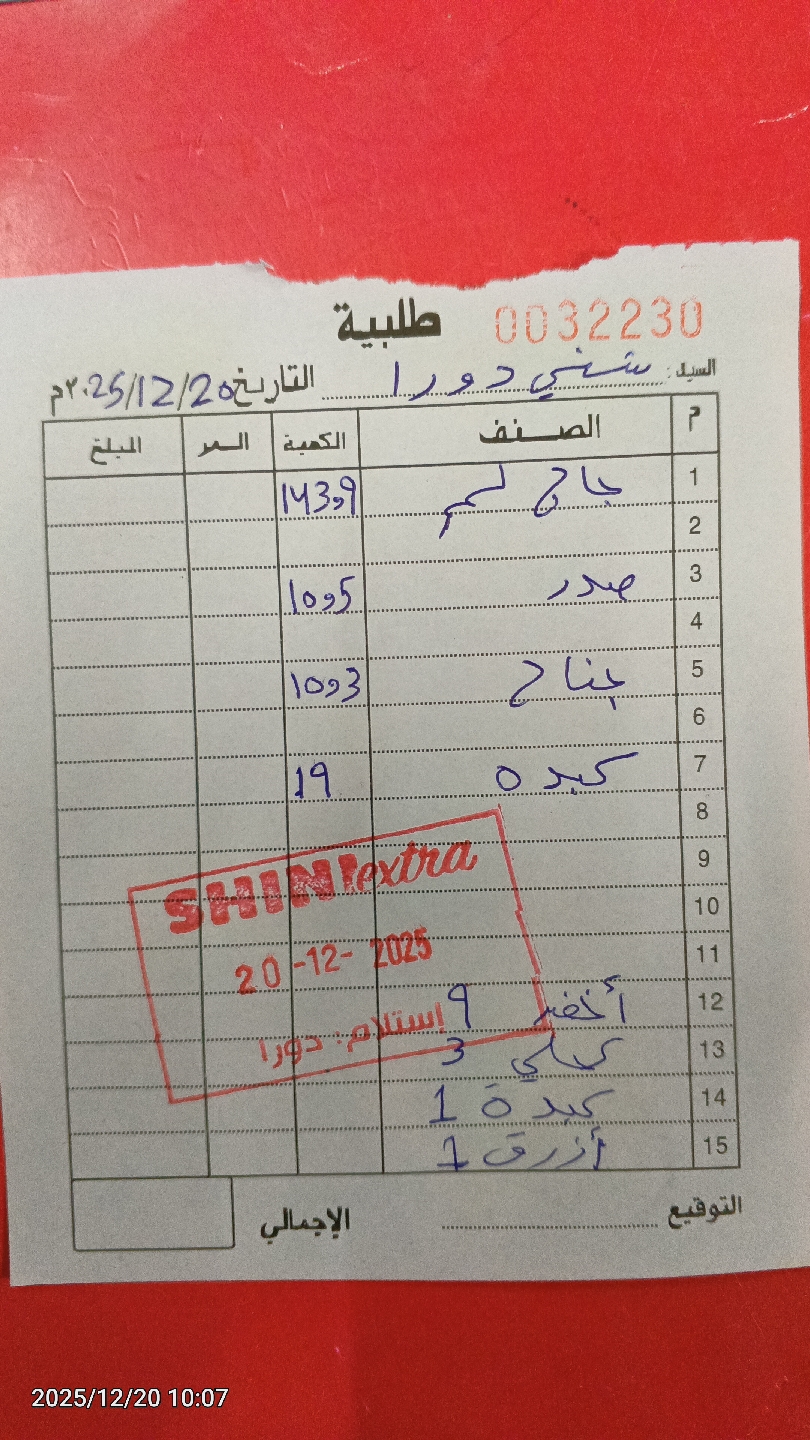 طلبية 0032230
السيد: شني دورا التاريخ 20/12/25٢٠م
م الصنف الكمية السعر المبلغ
1 جاج لحم 143,9
2
3 صدر 10,5
4
5 جناح 10,3
6
7 كبده 19
8
9
SHINI extra
10
11
20-12-2025
12 أخضر 9
إستلام: دورا
13 كحلي 3
14 كبدة 1
15 أزرق 1
التوقيع الإجمالي
2025/12/20 10:07